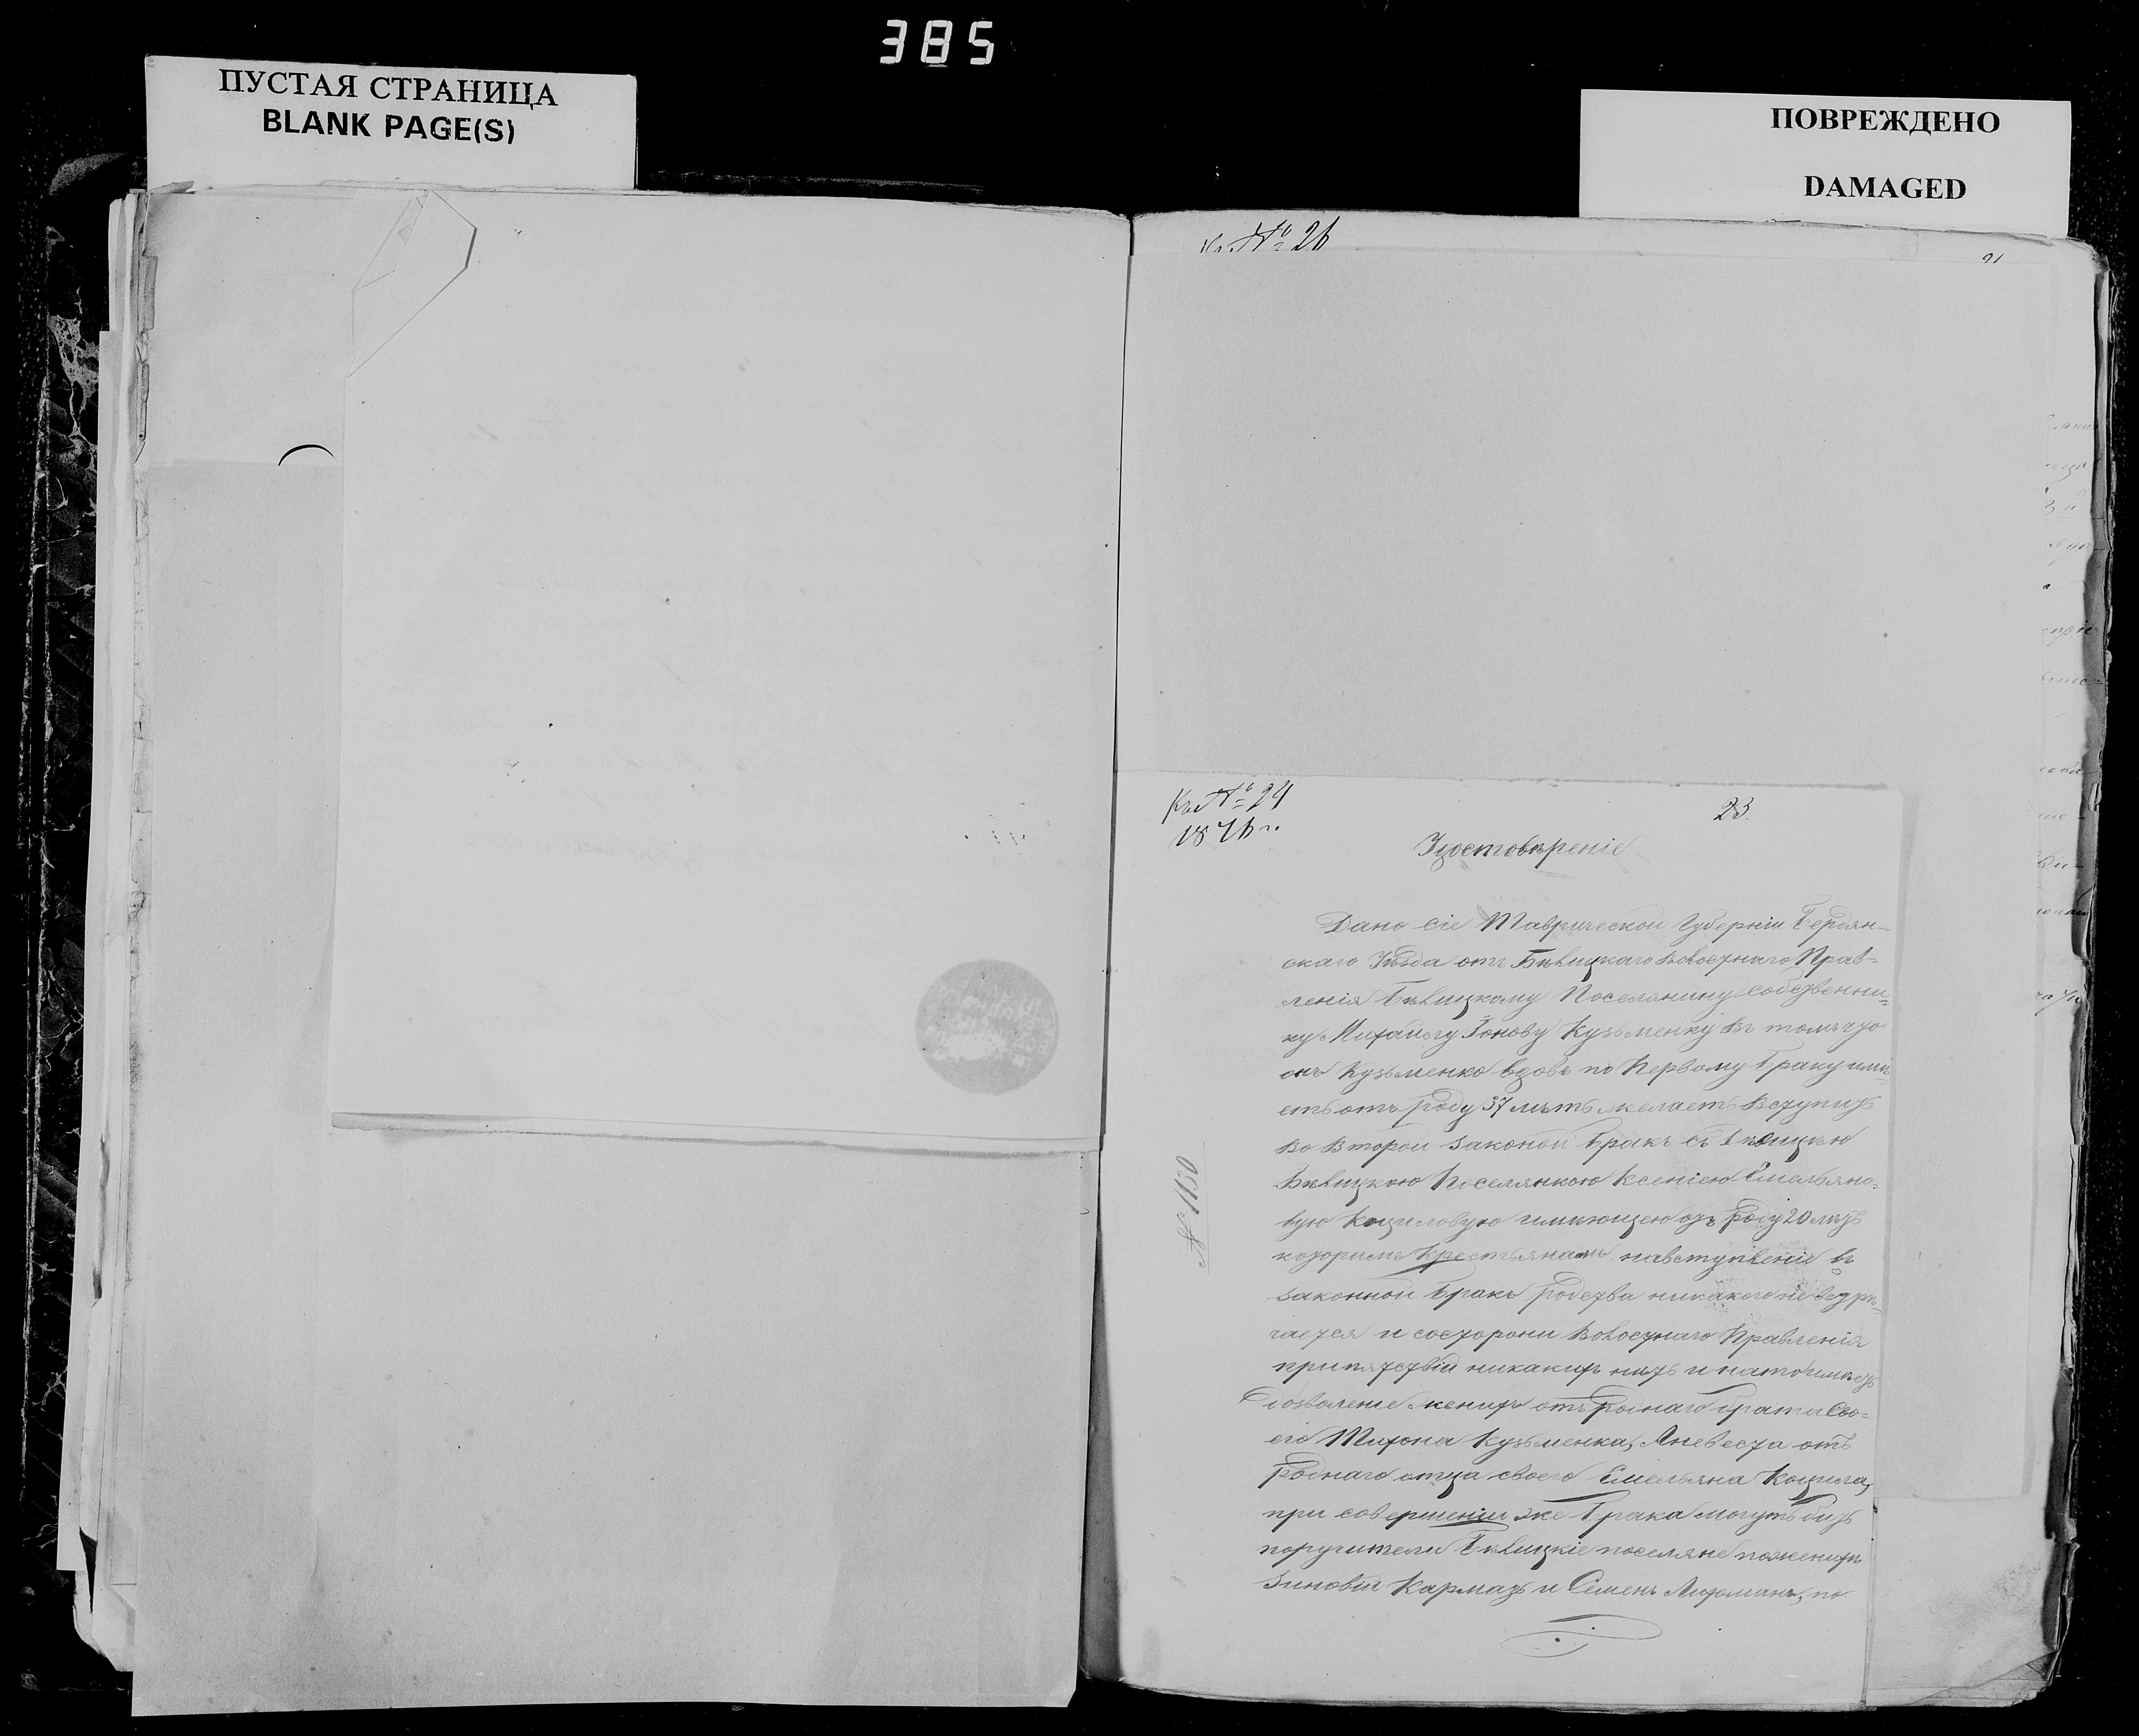 385
ПУСТАЯ СТРАНИЦА
BLANK PAGE(S)
ПОВРЕЖДЕНО
DAMAGED
№ 26
Къ № 24
1876 г.
23.
Удостовѣреніе
Дано сіе Таврической Губерніи Бердян-
скаго Уѣзда отъ Волостнаго Прав-
ленія Поселянину собственни-
ку Михаилу Іонову Кузьменку въ томъ что
онъ Кузьменко вдовъ по Первому браку имѣ-
етъ отъ роду 37 лѣтъ желаетъ вступить
во второй законой бракъ съ дѣвицѣю
Поселянкою Ксеніею Емельяно-
вую имѣющею отъ роду 20 лѣтъ
которимъ крестьянамъ навступленіе въ
законной бракъ родства никакого не встрѣ-
чается и состороны Волостнаго Правленія
припятствій никакихъ нѣтъ и на то имѣетъ
дозволеніе женихъ отъ роднаго брата сво-
его Тихона Кузьменка, Аневеста отъ
роднаго отца своего Емельяна
при совершеніи же брака могутъ бить
поручители поселяне поженихѣ
Зиновій Кармазь и Семенъ по
№ 1150